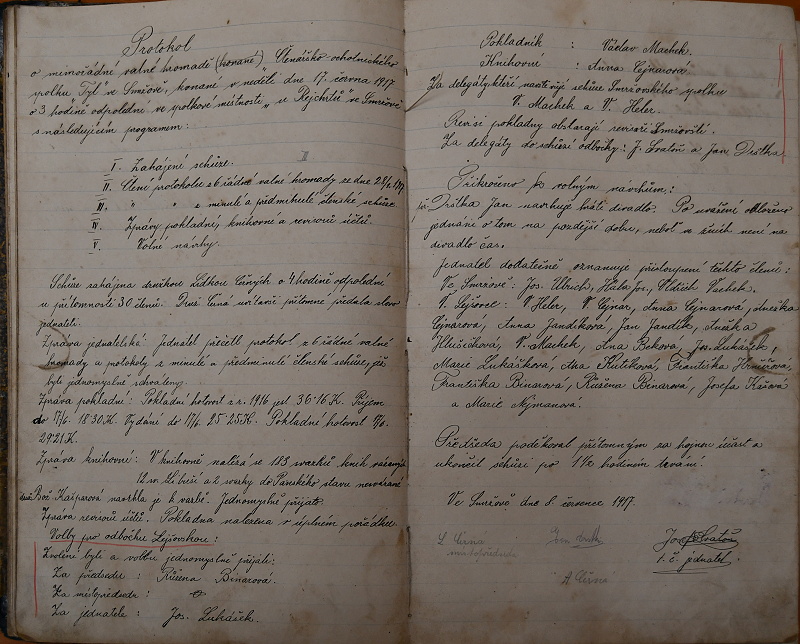 Protokol
o mimořádné valné hromadě (konané), Čtenářsko ochotnického
spolku "Tyl" ve Smržově, konané v neděli dne 17. června 1917
o 3 hodině odpoledne ve spolkové místnosti "u Rejchrtů" ve Smržově
s následujícím programem:
I. Zahájení schůze.
II. Čtení protokolu z 6 řádné valné hromady ze dne 28/1. 1917
III. " " z minulé a předminulé členské schůze
IV. Zprávy pokladní, knihovní a revisorů účtů.
V. Volné návrhy.
Schůze zahájena družkou Lidkou Černých o 4 hodině odpolední
u přítomnosti 30 členů. Druž. Černá uvítavši přítomné předala slovo
jednateli.
Zpráva jednatelská: Jednatel přečetl protokol z 6 řádné valné
hromady a protokoly z minulé a předminulé členské schůze, jež
byly jednomyslně schváleny.
Zpráva pokladní: Pokladní hotovost z r. 1916 jest 36·16 K. Příjem
do 17/6. 18·30 K. Vydání do 17/6. 25·25 K. Pokladní hotovost 17/6.
29·21 K.
Zpráva knihovní: V knihovně nalézá se 183 svazků knih vázaných
a 2 svazky do Panského stavu nevázané
Kašparova navrhla je k vazbě. Jednomyslně přijato.
Zpráva revisorů účtů. Pokladna nalezena v úplném pořádku.
Volby pro odbočku Lejšovskou:
Zvoleni byli a volbu jednomyslně přijali:
Za předsedu: Růžena Binarová.
Za místopředsedu:
Za jednatele: Jos. Lukášek.
Pokladník : Václav Machek.
Knihovní : Anna Cejnarová.
Za delegáty kteří navštíví schůze Smržovského spolku
V. Machek a V. Heler.
Revisi pokladny obstarají revisoři Smržovští.
Za delegáty do schůzí odbočky: J. Svatoň a Jan Drštka
Přikročeno k volným návrhům:
Drštka Jan navrhuje hráti divadlo. Po uvážení odloženo
jednání o tom na pozdější dobu, neboť ve žních není na
divadlo čas.
Jednatel dodatečně oznamuje přistoupení těchto členů:
Ve Smržově: Jos. Ulrich, Hala Jos., Oldřich Vacek.
V Lejšovce: V Heler, V Cejnar, Anna Cejnarová, Anežka
Cejnarova, Anna Jandíková, Jan Jandík, Anežka
V. Machek, Ana Beková, Jos. Lukášek,
Marie Lukášková, Ana Kutíková, Františka
Františka Binarová, Růžena Binarová, Josefa
a Marie Nýmanová.
Předseda poděkoval přítomným za hojnou účast a
ukončil schůzi po 1½ hodiném trvání.
Ve Smržově dne 8. července 1917.
L Černá
místopředseda
Jos Svatoň
t. č. jednatel.
A Černá